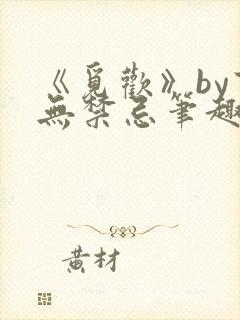 《覓歡》by
無禁忌筆趣
黃材